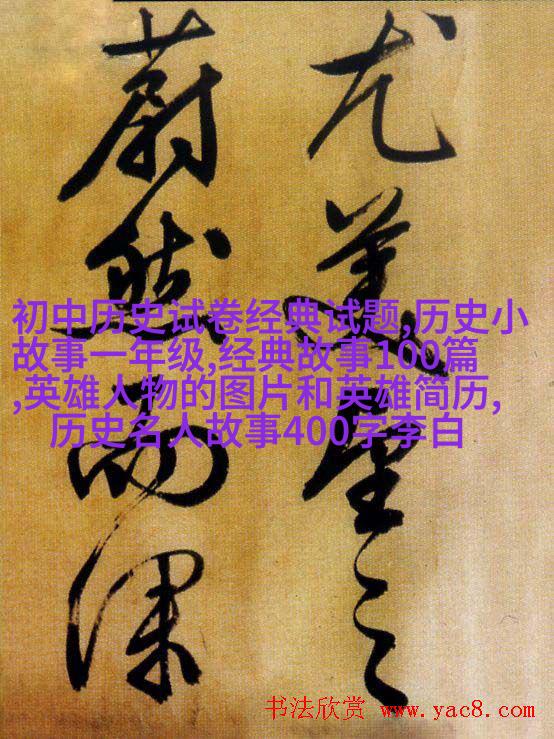 尤美望之
蔚然而深
初中历史试卷经典试题,历史小
故事一年级,经典故事100篇
,英雄人物的图片和英雄简历,
历史名人故事400字李白
书法欣赏 www.yac8.com